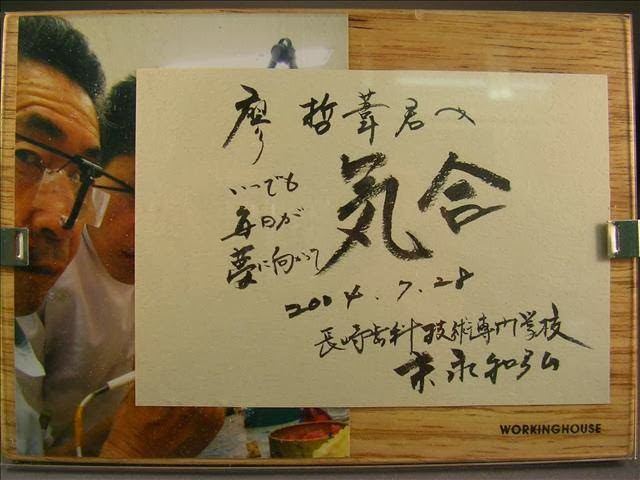 廖 哲葦君へ
気合
いつでも
毎日が
夢に向かって
2004.7.28
長崎歯科技術専門学校
末永和弘
WORKINGHOUSE